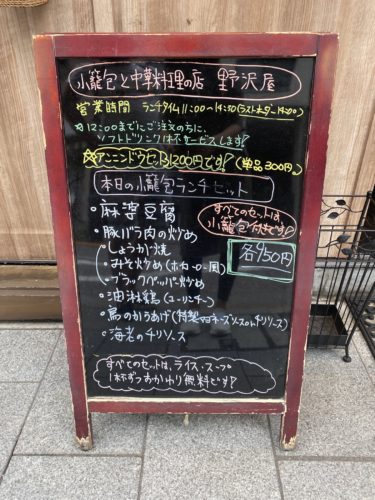 小籠包と中華料理の店 野沢屋
営業時間 ランチタイム11:00〜14:50(ラストオーダー14:20)
※12:00までにご注文の方に、
ソフトドリンク1杯サービスします!
☆アンニンドウセット200円です!(単品300円)
本日の小籠包ランチセット
すべてのセットは
小籠包付です!
・麻婆豆腐
・豚バラ肉の炒め
しょうが焼
各950円
・みそ炒め(ホイコーロー風)
・ブラックペッパー炒め
・油淋鶏(ユーリンチー)
・鳥のからあげ(特製マヨネーズソースorチリソース)
・海老のチリソース
すべてのセットは、ライス・スープ
1杯ずつおかわり無料です!